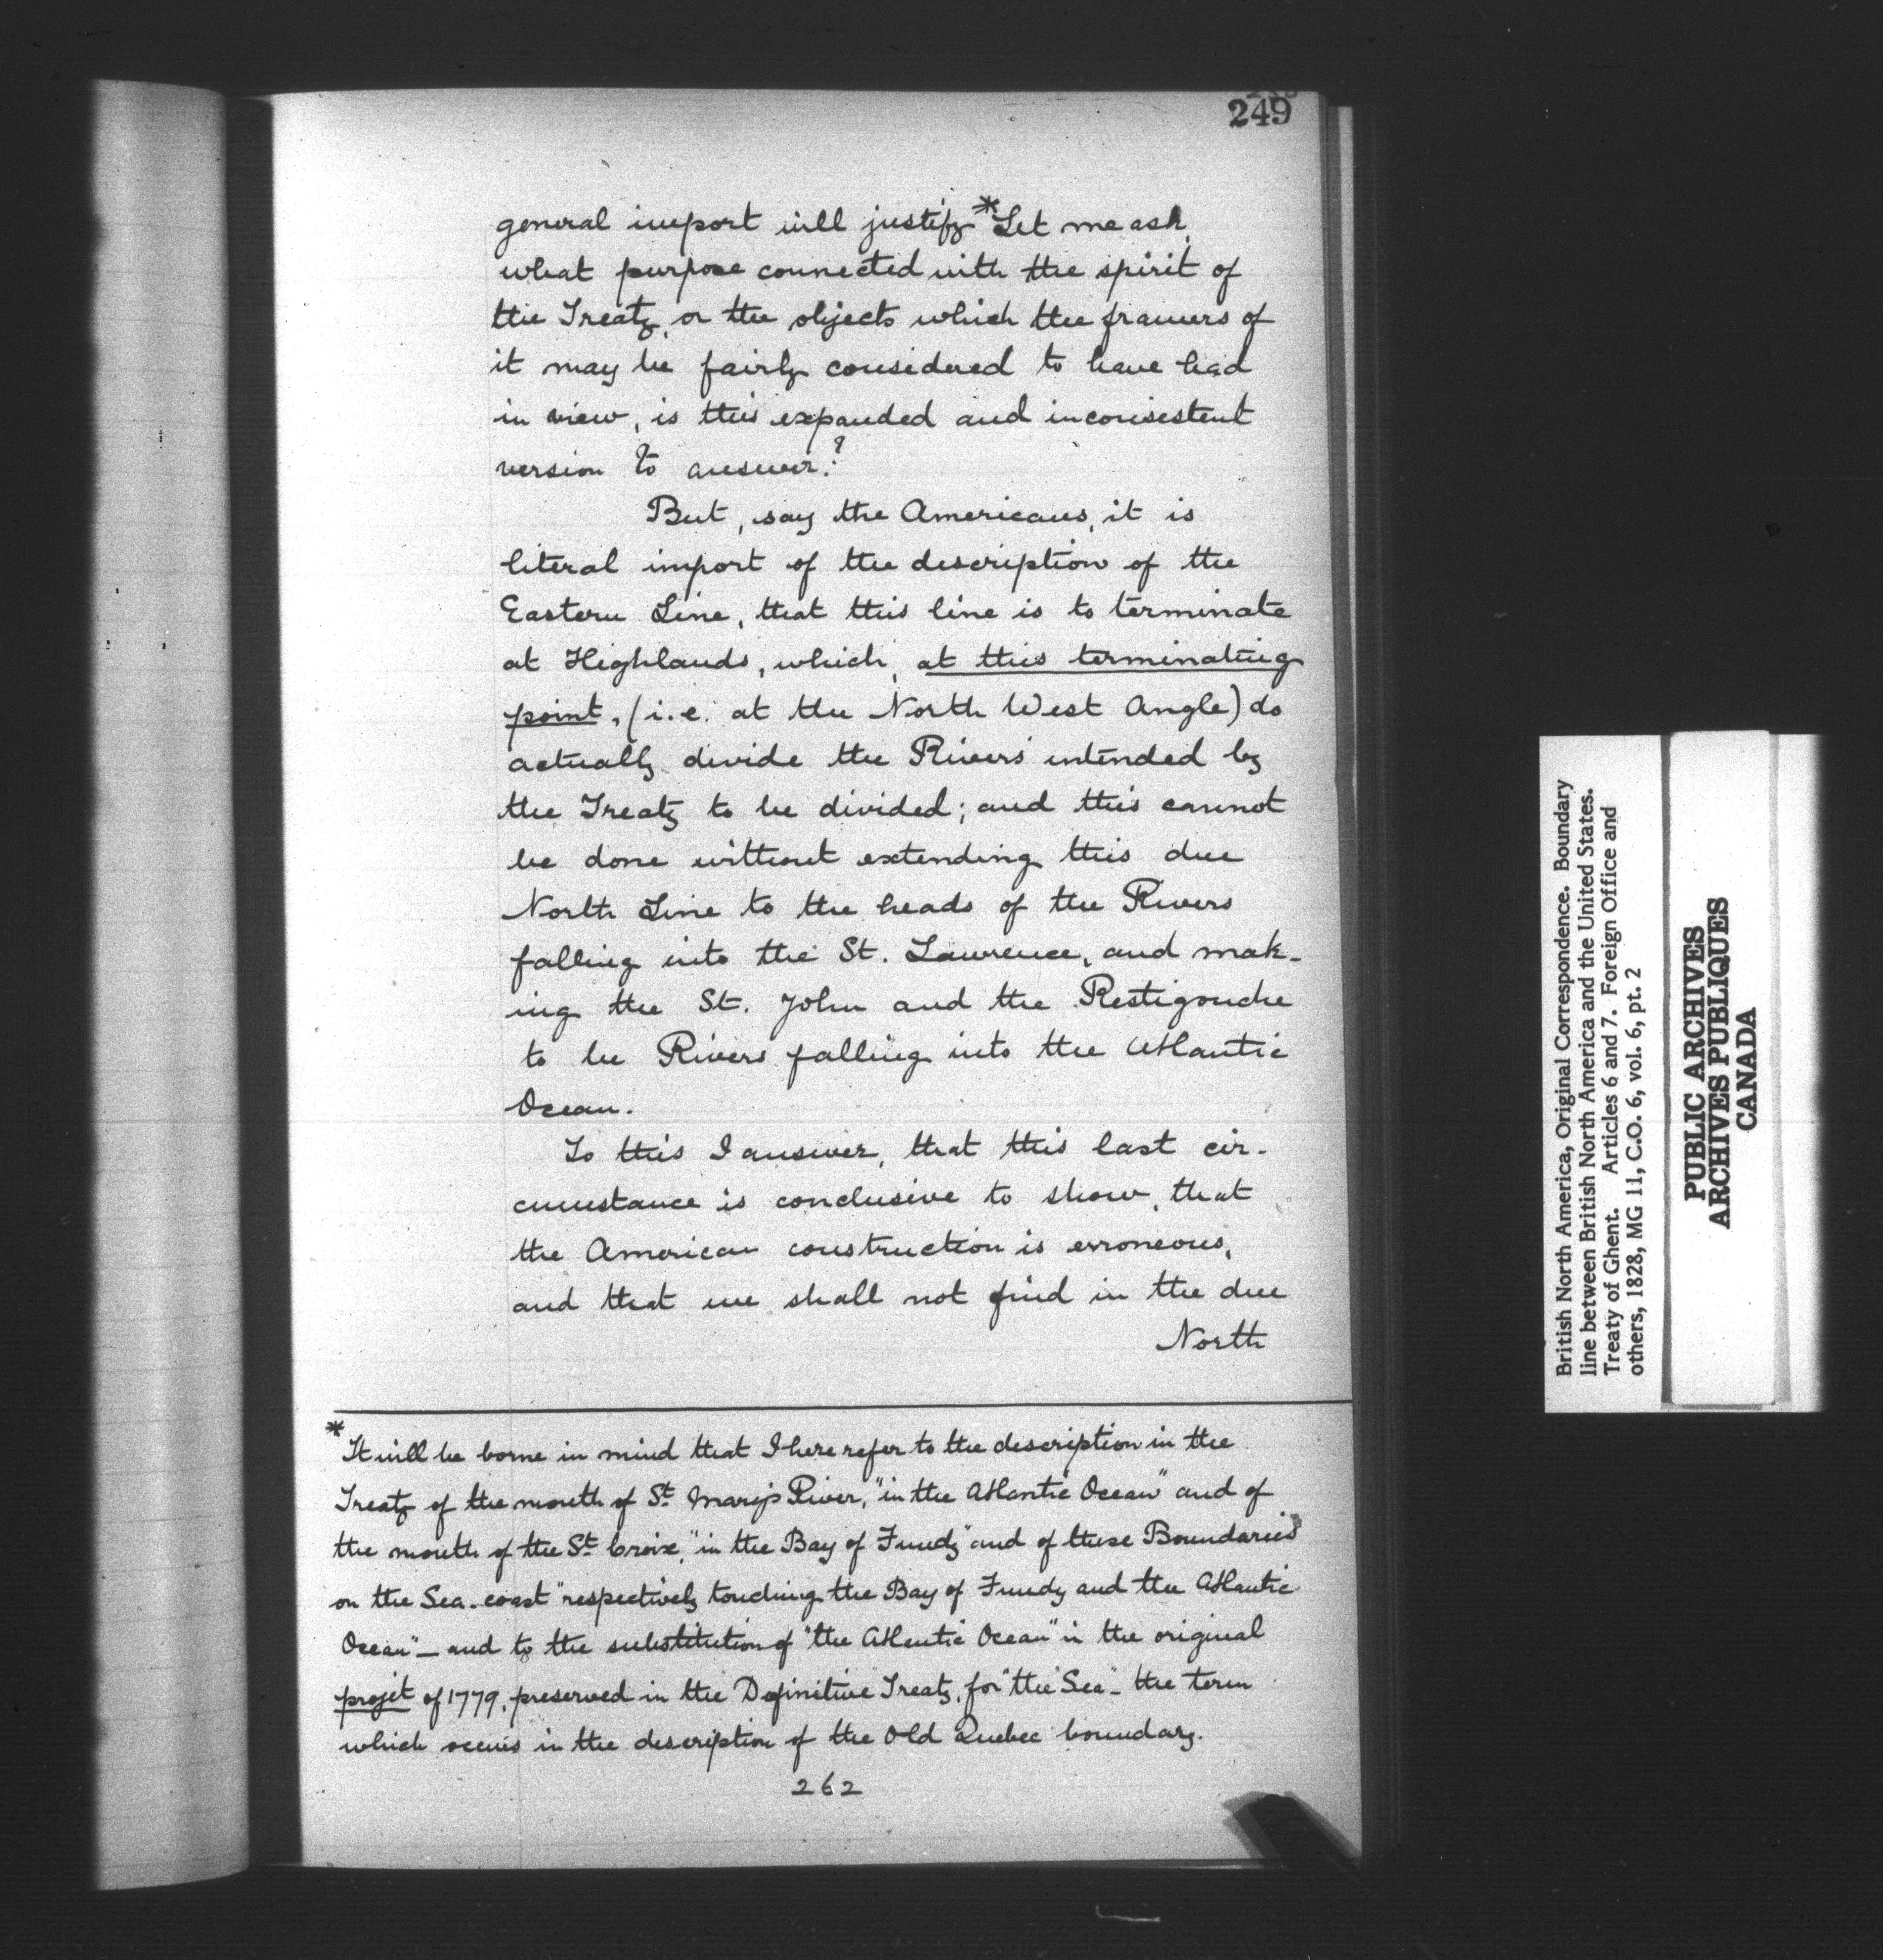 249
general import will justify.* Let me ask,
what purpose connected with the spirit of
the Treaty, or the objects which the framers of
it may be fairly considered to have had
in view, is this expanded and inconsistent
version to answer?
But, say the Americans, it is
literal import of the description of the
Eastern Line, that this line is to terminate
at Highlands, which, at this terminating
point, (i.e. at the North West Angle) do
actually divide the Rivers intended by
the Treaty to be divided; and this cannot
be done without extending this due
North Line to the heads of the Rivers
falling into the St. Lawrence, and mak-
ing the St. John and the Restigouche
to be Rivers falling into the Atlantic
Ocean.
To this I answer, that this last cir-
cumstance is conclusive to show, that
the American construction is erroneous,
and that we shall not find in the due
North
* It will be borne in mind that I here refer to the description in the
Treaty of the mouth of St. Mary's River, "in the Atlantic Ocean" and of
the mouth of the St. Croix, "in the Bay of Fundy" and of these Boundaries
on the Sea-coast "respectively touching the Bay of Fundy and the Atlantic
Ocean" — and to the substitution of "the Atlantic Ocean" in the original
projét of 1779, preserved in the Definitive Treaty, for "the Sea" - the term
which occurs in the description of the Old Quebec boundary.
262
British North America, Original Correspondence. Boundary
line between British North America and the United States.
Treaty of Ghent. Articles 6 and 7. Foreign Office and
others, 1828, MG 11, C.O. 6, vol. 6, pt. 2
PUBLIC ARCHIVES
ARCHIVES PUBLIQUES
CANADA